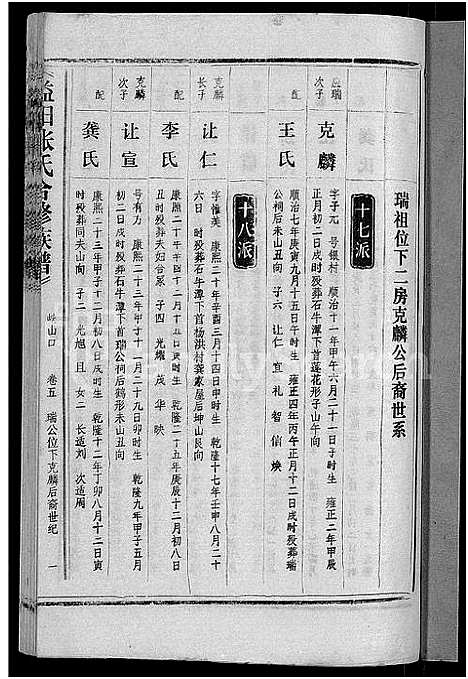 瑞祖位下二房克麟公后裔世系
十七派
应瑞次子
克麟
字子元 号银村 顺治十一年甲午六月二十一日子时生 雍正二年甲辰
正月初二日戌时殁葬石牛潭下首莲花形子山午向
配
王氏
顺治七年庚寅九月十五日午时生 雍正四年丙午正月十二日戌时殁葬瑞
公祠后未山丑向 子六 让仁 宣 礼 智 信 焕
十八派
克麟长子
让仁
字惟美 康熙二十年辛酉三月十四日申时生 乾隆十七年壬申八月二十
六日 时殁葬石牛潭下首杨洪村龚家屋后坤山艮向
配
李氏
康熙二十年辛酉十二月十五日寅时生 乾隆二十五年庚辰十二月初八日
丑时殁葬夫妇合冢 子四 光耀 茂 华 映
克麟次子
让宣
号有力 康熙二十三年甲子十一月二十九日卯时生 乾隆九年甲子五月
初二日戌时殁葬石牛潭下瑞公祠后鹤形未山丑向
配
龚氏
康熙二十三年甲子十二月初八日戌时生 乾隆十二年丁卯八月十二日寅
时殁葬同夫山向 子二 光旭 且 女二 长适刘 次适周
益阳张氏合修族谱
岭山口 卷五 瑞公位下克麟后裔世纪 一